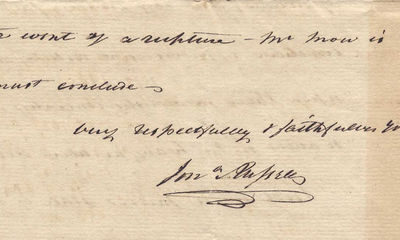 of a rupture – Mr
must conclude –
very respectfully & faithfully yo
Jon a Russell